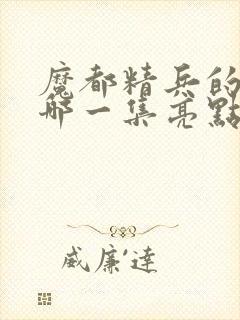 魔都精兵的
哪一集亮點
威廉達